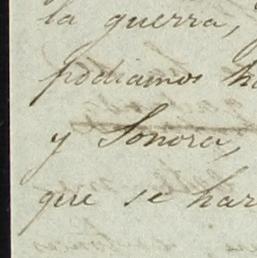 la guerra,
podiamos
y Sonora,
que se